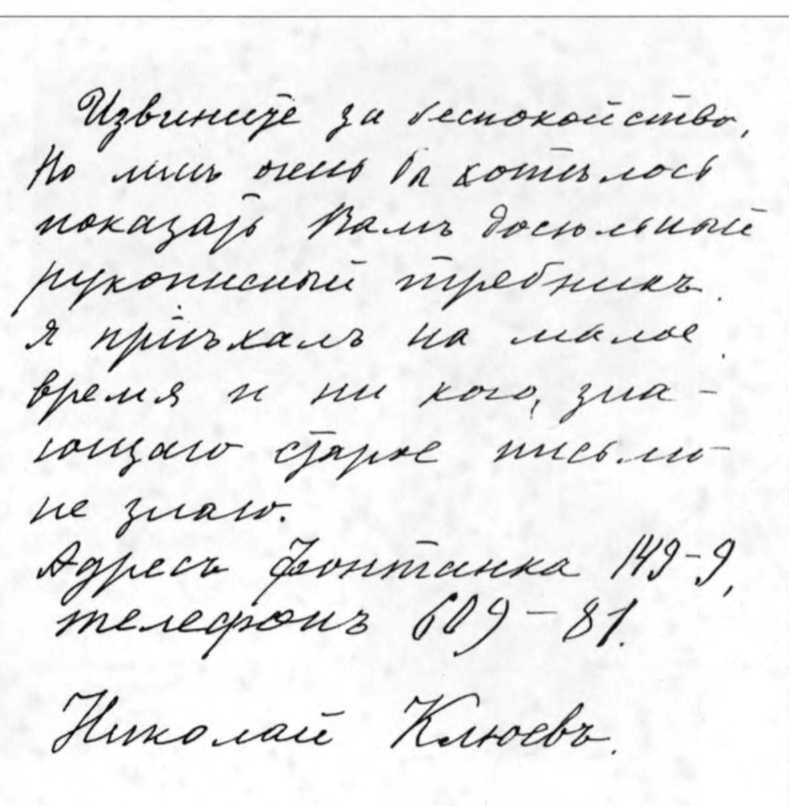 Извините за беспокойство,
Но мнѣ очень бы хотѣлось
показать Вамъ досюльный
рукописный требникъ.
я пріѣхалъ на малое
время и ни кого, зна-
ющаго старое письмо
не знаю.
Адресъ Фонтанка 149-9,
телефонъ 609-81.
Николай Клюевъ.